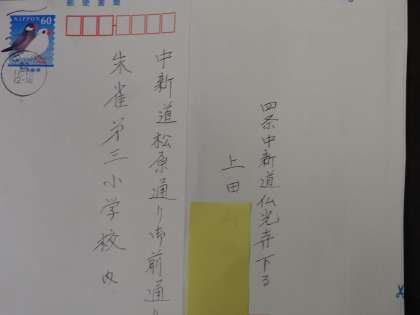 郵便書簡
NIPPON 60
四条中新道仏光寺下る
上田
中新道松原通り御前通り
朱雀第三小学校内